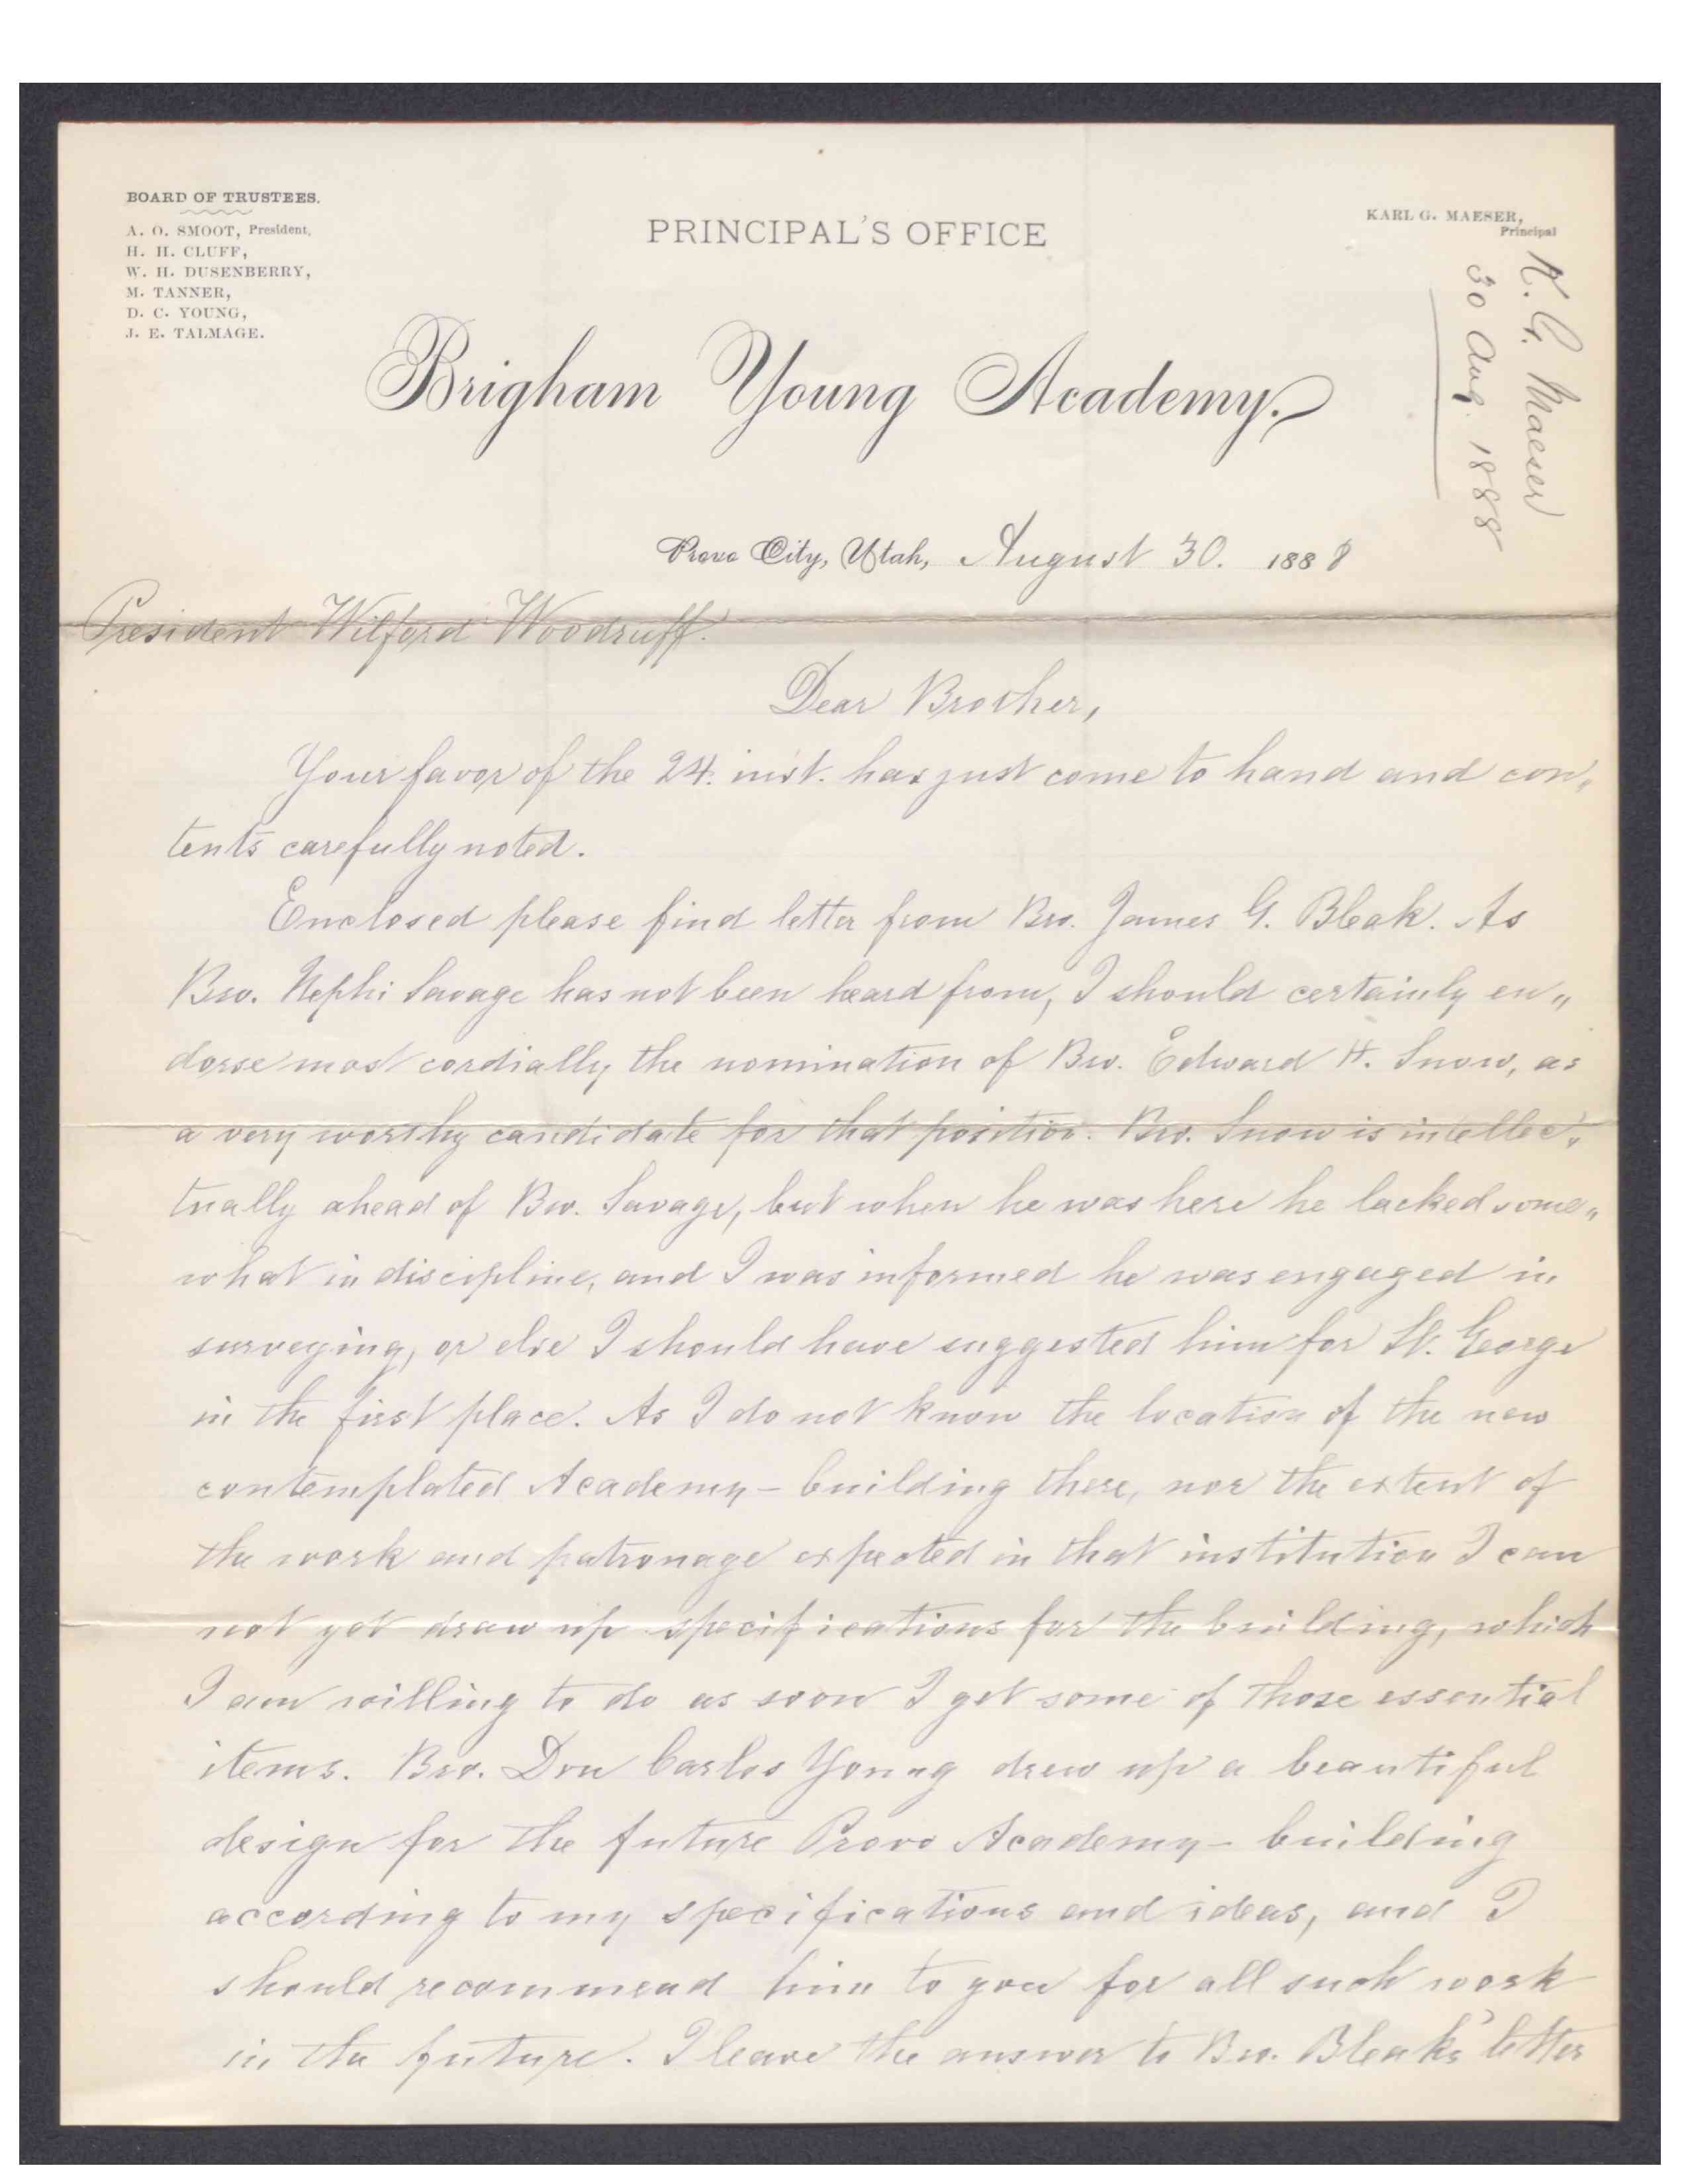 BOARD OF TRUSTEES.
A. O. SMOOT, President,
H. H. CLUFF,
W. H. DUSENBERRY,
M. TANNER,
D. C. YOUNG,
J. E. TALMAGE.
PRINCIPAL'S OFFICE
KARL G. MAESER,
Principal
K. G. Maeser
30 Aug. 1888
Brigham Young Academy.
Provo City, Utah, August 30. 1888
President Wilford Woodruff.
Dear Brother,
Your favor of the 24. inst. has just come to hand and con„
tents carefully noted.
Enclosed please find letter from Bro. James G. Bleak. As
Bro. Nephi Savage has not been heard from, I should certainly en„
dorse most cordially the nomination of Bro. Edward H. Snow, as
a very worthy candidate for that position. Bro. Snow is intellec„
tually ahead of Bro. Savage, but when he was here he lacked some„
what in discipline, and I was informed he was engaged in
surveying, or else I should have suggested him for St. George
in the first place. As I do not know the location of the new
contemplated Academy-building there, nor the extent of
the work and patronage expected in that institution I can
not yet draw up specifications for the building, which
I am willing to do as soon I get some of those essential
items. Bro. Don Carlos Young drew up a beautiful
design for the future Provo Academy-building
according to my specifications and ideas, and I
should recommend him to you for all such work
in the future. I leave the answer to Bro. Bleak's letter